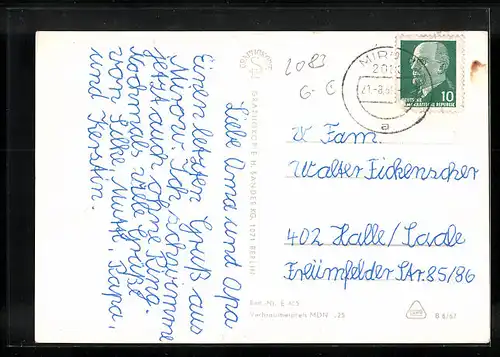 Liebe Oma und Opa
Einen letzten Gruß aus
Mirow. Ich schwimme
jetzt auch ohne Ring.
Nochmals viele Grüße
von Silke Mutti, Papa,
und Kerstin.
GRAPHOKOPIE H. SANDER KG, 1071 BERLIN
2083
G. C
MIROW
208
21.-8.68
a
10
DEUTSCHE
DEMOKRATISCHE REPUBLIK
Fam.
Walter Fickenscher
402 Halle/Saale
Freiimfelder Str. 85/86
Best.-Nr. E 415
Verbraucherpreis MDN -,25
B 8/67